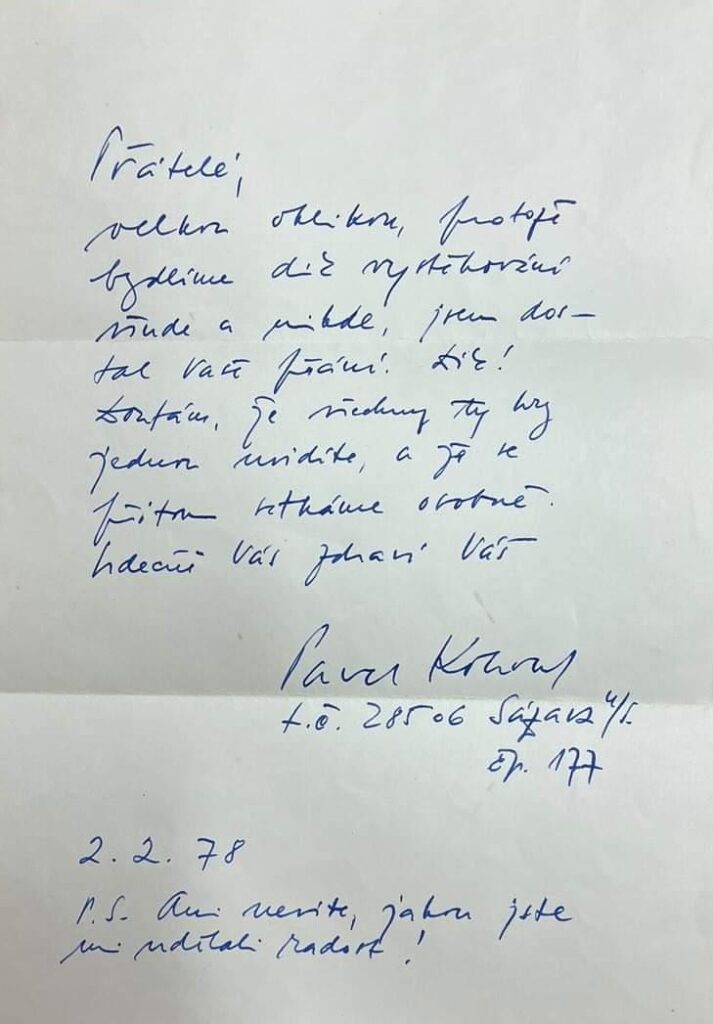 Přátelé,
velkou oklikou, protože
bydlíme díky vystěhování
všude a nikde, jsem dos-
tal Vaše přání. Dík!
Doufám, že všechny ty hry
jednou uvidíte, a že se
přitom setkáme osobně.
Srdečně Vás zdraví Váš
Pavel Kohout
t.č. 28506 Sázava n/S.
čp. 177
2. 2. 78
P.S. Ani nevíte, jakou jste
mi udělali radost!